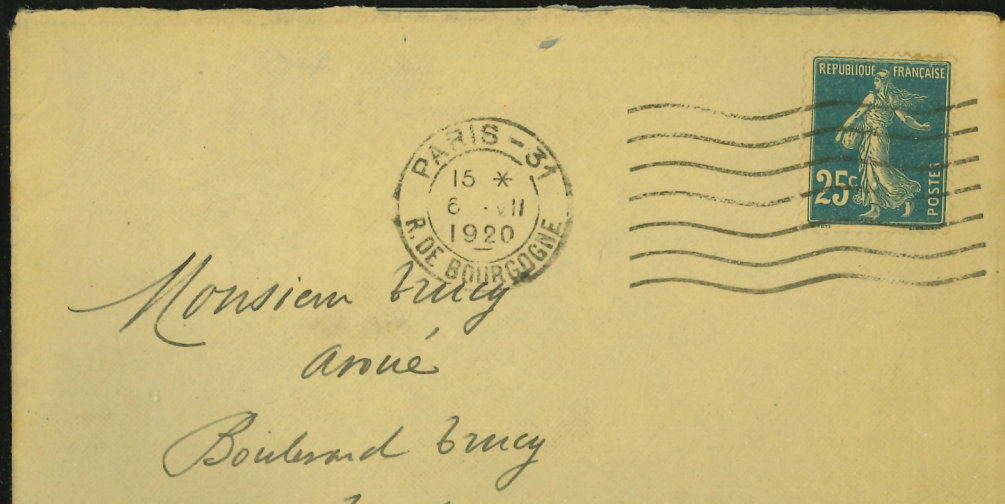 RÉPUBLIQUE FRANÇAISE
25c
POSTES
PARIS - 31
15 *
6 - VII
1920
R. DE BOURGOGNE
Monsieur Trucy
avoué
Boulevard Trucy